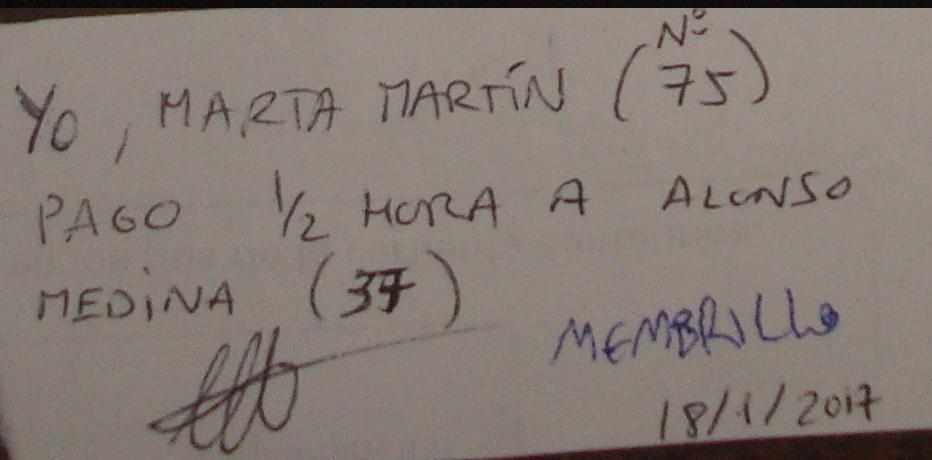 Nº
YO, MARTA MARTÍN (75)
PAGO 1/2 HORA A ALONSO
MEDINA (37)
MEMBRILLO
18/1/2017